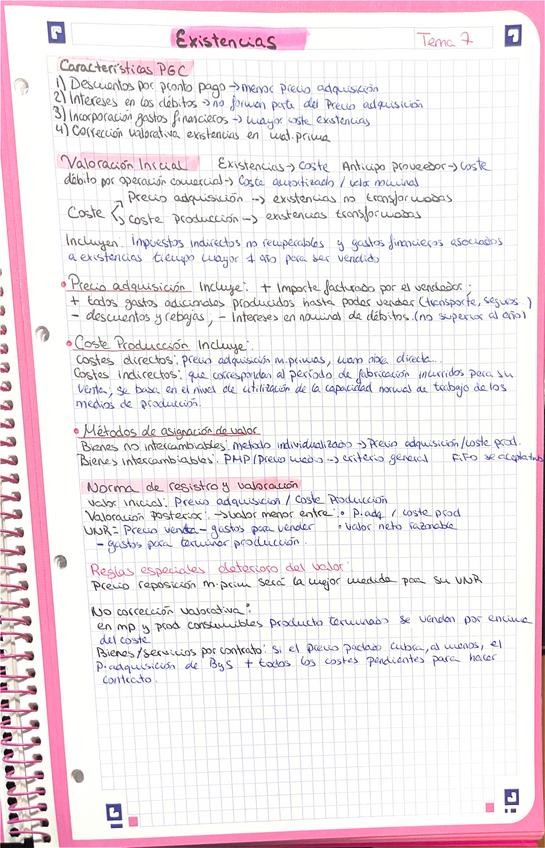 Existencias
Tema 7
Características PGC
1) Descuentos por pronto pago → menor precio adquisición
2) Intereses en los débitos → no forman parte del Precio adquisición
3) Incorporación gastos financieros → mayor coste existencias
4) Corrección valorativa existencias en mat. prima
Valoración Inicial Existencias → Coste Anticipo Proveedor → Coste
débito por operación comercial → Coste amortizado / valor nominal
Coste Precio adquisición → existencias no transformadas
coste producción → existencias transformadas
Incluyen Impuestos indirectos no recuperables y gastos financieros asociados
a existencias tiempo mayor 1 año para ser vendido
• Precio adquisición Incluye: + Importe facturado por el vendedor;
+ todos gastos adicionales producidos hasta poder vender (transporte, seguros..)
- descuentos y rebajas, - Intereses en nominal de débitos. (no superior al año)
• Coste Producción Incluye:
costes directos: precio adquisición m. primas, mano obra directa...
Costes indirectos: que correspondan al período de fabricación incurridos para su
venta, se basa en el nivel de utilización de la capacidad normal de trabajo de los
medios de producción.
• Métodos de asignación de valor
Bienes no intercambiables: metodo individualizado → Precio adquisición/coste prod.
Bienes intercambiables: PMP/Precio medio → criterio general FIFO se acepta
Norma de registro y valoración
valor inicial: Precio adquisición / Coste Producción
Valoración Posterior: → valor menor entre: • P. adq / coste prod
VNR = Precio venta - gastos para vender • valor neto razonable
- gastos para terminar producción.
Reglas especiales deterioro del valor:
Precio reposición m. prim será la mejor medida para su VNR
No corrección valorativa:
en mp y prod consumibles producto terminado se vendan por encima
del coste
Bienes/servicios por contrato: si el precio pactado cubra, al menos, el
P. adquisición de ByS + todos los costes pendientes para hacer
contrato.